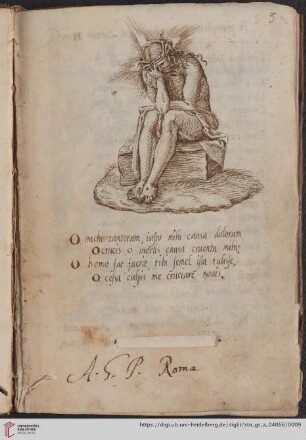 5
O mihi tantorum, iusso mihi causa dolorum
O crucis o mortis causa cruenta mihi
O homo sat fuerit, tibi semel ista tulisse,
O cessa culpis me cruciare novis.
A. G. P. Roma
UNIVERSITÄTS-
BIBLIOTHEK
HEIDELBERG
https://digi.ub.uni-heidelberg.de/diglit/stn_gr_a_04066/0009